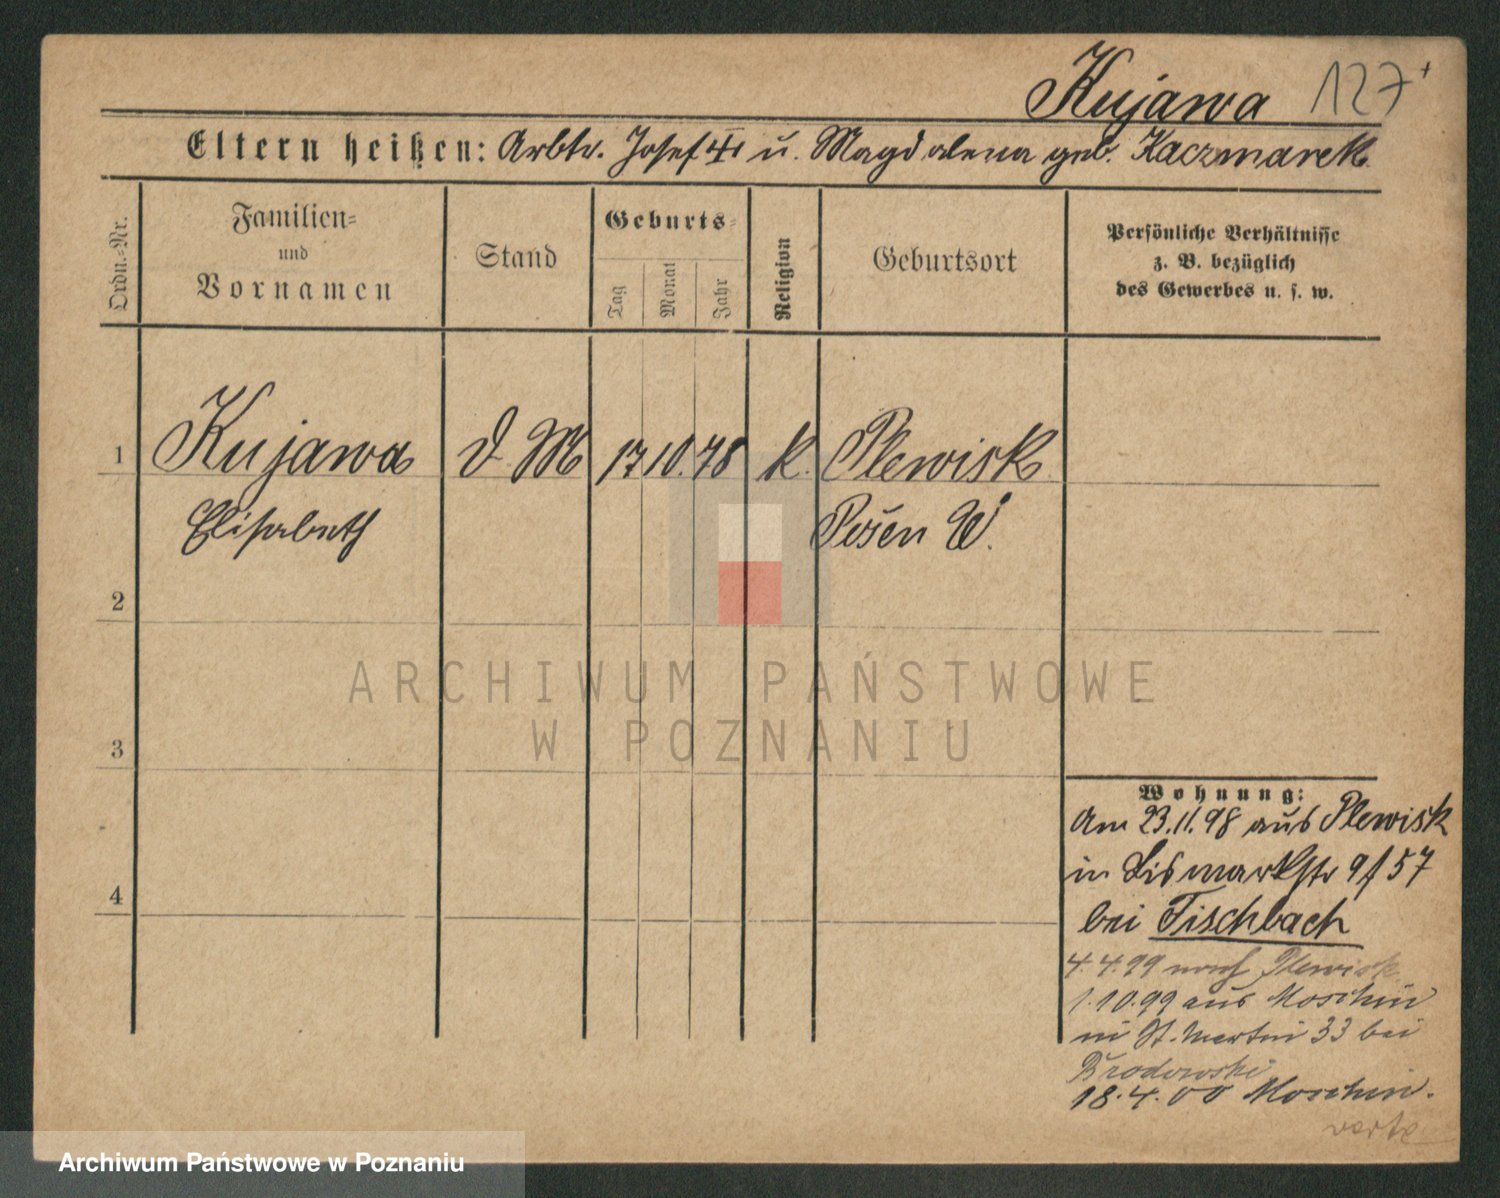 Kujawa 127+
Eltern heißen: Arbtr. Josef II u. Magdalena geb. Kaczmarek
Ordn.-Nr.
Familien-
und
Vornamen
Stand
Geburts-
Tag
Monat
Jahr
Religion
Geburtsort
Persönliche Verhältnisse
z. B. bezüglich
des Gewerbes u. s. w.
1 Kujawa D. M 17 10. 78 k. Plewisk
Elisabeth Posen W.
2
3
4
ARCHIWUM PAŃSTWOWE
W POZNANIU
Wohnung:
Am 23.11.98 aus Plewisk
in Bismarckstr 9/57
bei Tischbach
4.4.99 nach Plewisk
1.10.99 aus Moschin
in St. Martin 33 bei
Brodowski
18.4.00 Moschin.
verte
Archiwum Państwowe w Poznaniu